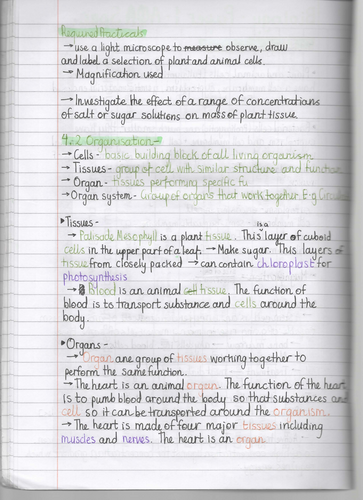 Required Practicals
→ use a light microscope to measure observe, draw
and label a selection of plant and animal cells.
→ Magnification used
→ Investigate the effect of a range of concentrations
of salt or sugar solutions on mass of plant tissue.
4.2 Organisation-
→ Cells - basic building block of all living organism
→ Tissues - group of cell with similar structure and function
→ Organ - tissues performing specific fu
→ Organ system - Group of organs that work together E.g
▸Tissues -
→ Palisade Mesophyll is a plant tissue. This is a layer of cuboid
cells in the upper part of a leaf. → Make sugar. This layers of
tissue from closely packed → can contain chloroplast for
photosynthesis
→ Blood is an animal cell tissue. The function of
blood is to transport substance and cells around the
body.
▸Organs -
→ Organ are group of tissues working together to
perform the same function.
→ The heart is an animal organ. The function of the heart
is to pump blood around the body so that substances and
cell so it can be transported around the organism.
→ The heart is made of four major tissues including
muscles and nerves. The heart is an organ.